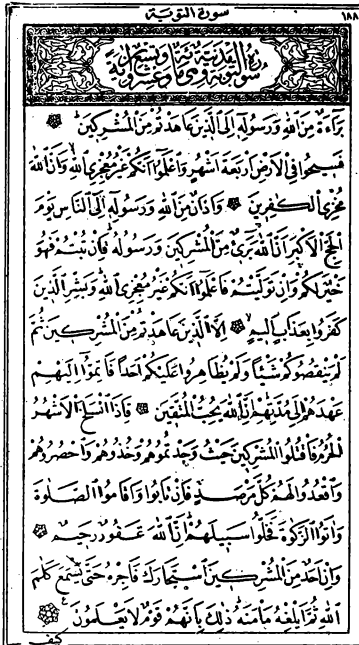 سورة التوبة ١٨٨
بَرَاءَةٌ مِنَ اللهِ وَرَسُولِهِ اِلَى الَّذِينَ عَاهَدْتُمْ مِنَ الْمُشْرِكِينَ
فَسِيحُوا فِي الْاَرْضِ اَرْبَعَةَ اَشْهُرٍ وَاعْلَمُوا اَنَّكُمْ غَيْرُ مُعْجِزِي اللهِ وَاَنَّ اللهَ
مُخْزِي الْكَافِرِينَ وَاَذَانٌ مِنَ اللهِ وَرَسُولِهِ اِلَى النَّاسِ يَوْمَ
الْحَجِّ الْاَكْبَرِ اَنَّ اللهَ بَرِيءٌ مِنَ الْمُشْرِكِينَ وَرَسُولُهُ فَاِنْ تُبْتُمْ فَهُوَ
خَيْرٌ لَكُمْ وَاِنْ تَوَلَّيْتُمْ فَاعْلَمُوا اَنَّكُمْ غَيْرُ مُعْجِزِي اللهِ وَبَشِّرِ الَّذِينَ
كَفَرُوا بِعَذَابٍ اَلِيمٍ اِلَّا الَّذِينَ عَاهَدْتُمْ مِنَ الْمُشْرِكِينَ ثُمَّ
لَمْ يَنْقُصُوكُمْ شَيْئًا وَلَمْ يُظَاهِرُوا عَلَيْكُمْ اَحَدًا فَاَتِمُّوا اِلَيْهِمْ
عَهْدَهُمْ اِلَى مُدَّتِهِمْ اِنَّ اللهَ يُحِبُّ الْمُتَّقِينَ فَاِذَا انْسَلَخَ الْاَشْهُرُ
الْحُرُمُ فَاقْتُلُوا الْمُشْرِكِينَ حَيْثُ وَجَدْتُمُوهُمْ وَخُذُوهُمْ وَاحْصُرُوهُمْ
وَاقْعُدُوا لَهُمْ كُلَّ مَرْصَدٍ فَاِنْ تَابُوا وَاَقَامُوا الصَّلٰوةَ
وَاٰتَوُا الزَّكٰوةَ فَخَلُّوا سَبِيلَهُمْ اِنَّ اللهَ غَفُورٌ رَحِيمٌ
وَاِنْ اَحَدٌ مِنَ الْمُشْرِكِينَ اسْتَجَارَكَ فَاَجِرْهُ حَتَّى يَسْمَعَ كَلَامَ
اللهِ ثُمَّ اَبْلِغْهُ مَأْمَنَهُ ذٰلِكَ بِاَنَّهُمْ قَوْمٌ لَا يَعْلَمُونَ
كيف